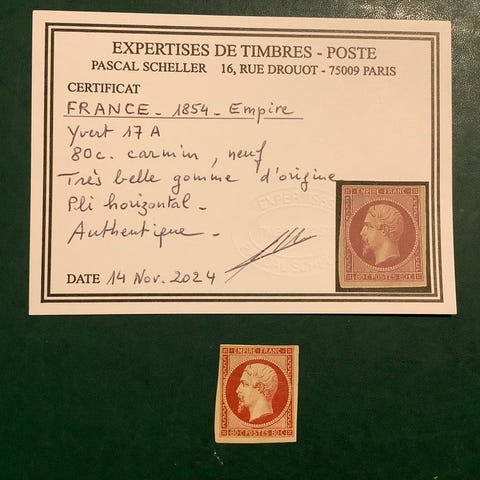 EXPERTISES DE TIMBRES - POSTE
PASCAL SCHELLER 16, RUE DROUOT - 75009 PARIS
CERTIFICAT
FRANCE - 1854 - Empire
Yvert 17 A
80c. carmin, neuf
Très belle gomme d'origine
Pli horizontal -
Authentique -
DATE 14 Nov. 2024
EMPIRE FRANC
80 C POSTES 80 C
EMPIRE FRANC
80 C POSTES 80 C